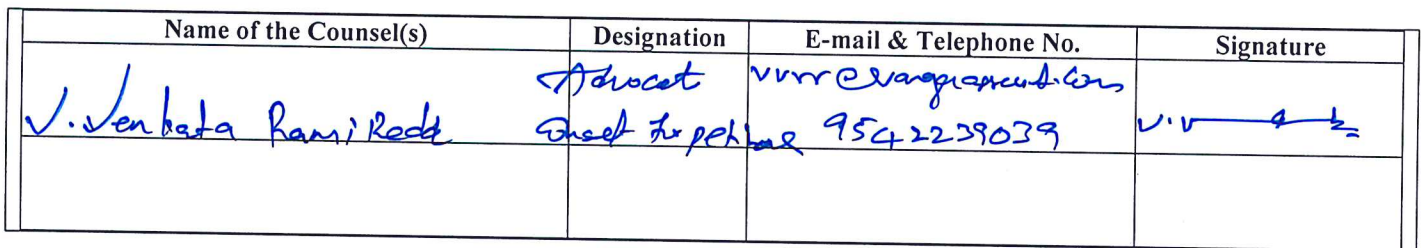 Name of the Counsel(s) Designation E-mail & Telephone No. Signature
Advocat
V. Venkata Rami Redd Counsel for petitioner 9542239039 V.V